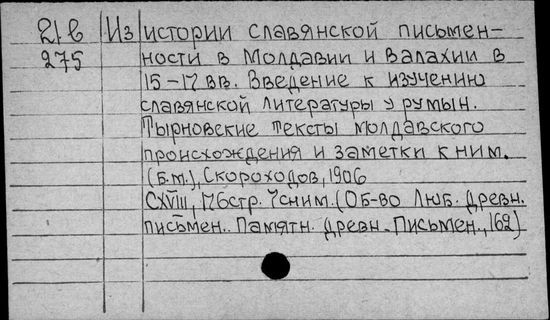 21 в Из истории славянской письмен-
275 ности в Молдавии и Валахии в
15-17 вв. Введение к изучению
славянской литературы у румын.
Тырновские тексты молдавского
происхождения и заметки к ним.
(Б.м.), Скороходов, 1906
CXVIII, 176стр. 7сним. (Об-во Люб. Древн.
письмен.. Памятн. древн. Письмен., 162)